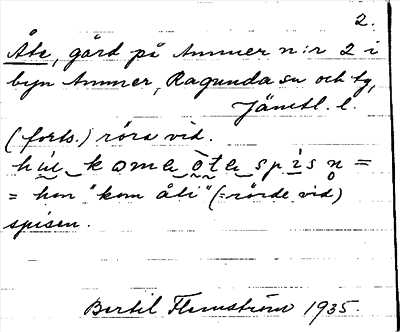 2.
Åte, gård på Ammer n:r 2 i
byn Ammer, Ragunda sn och tg,
Jämtl. l.
(forts.) röra vid.
= hon "kom åti" (= rörde vid)
spisen.
Bertil Flemström 1935.